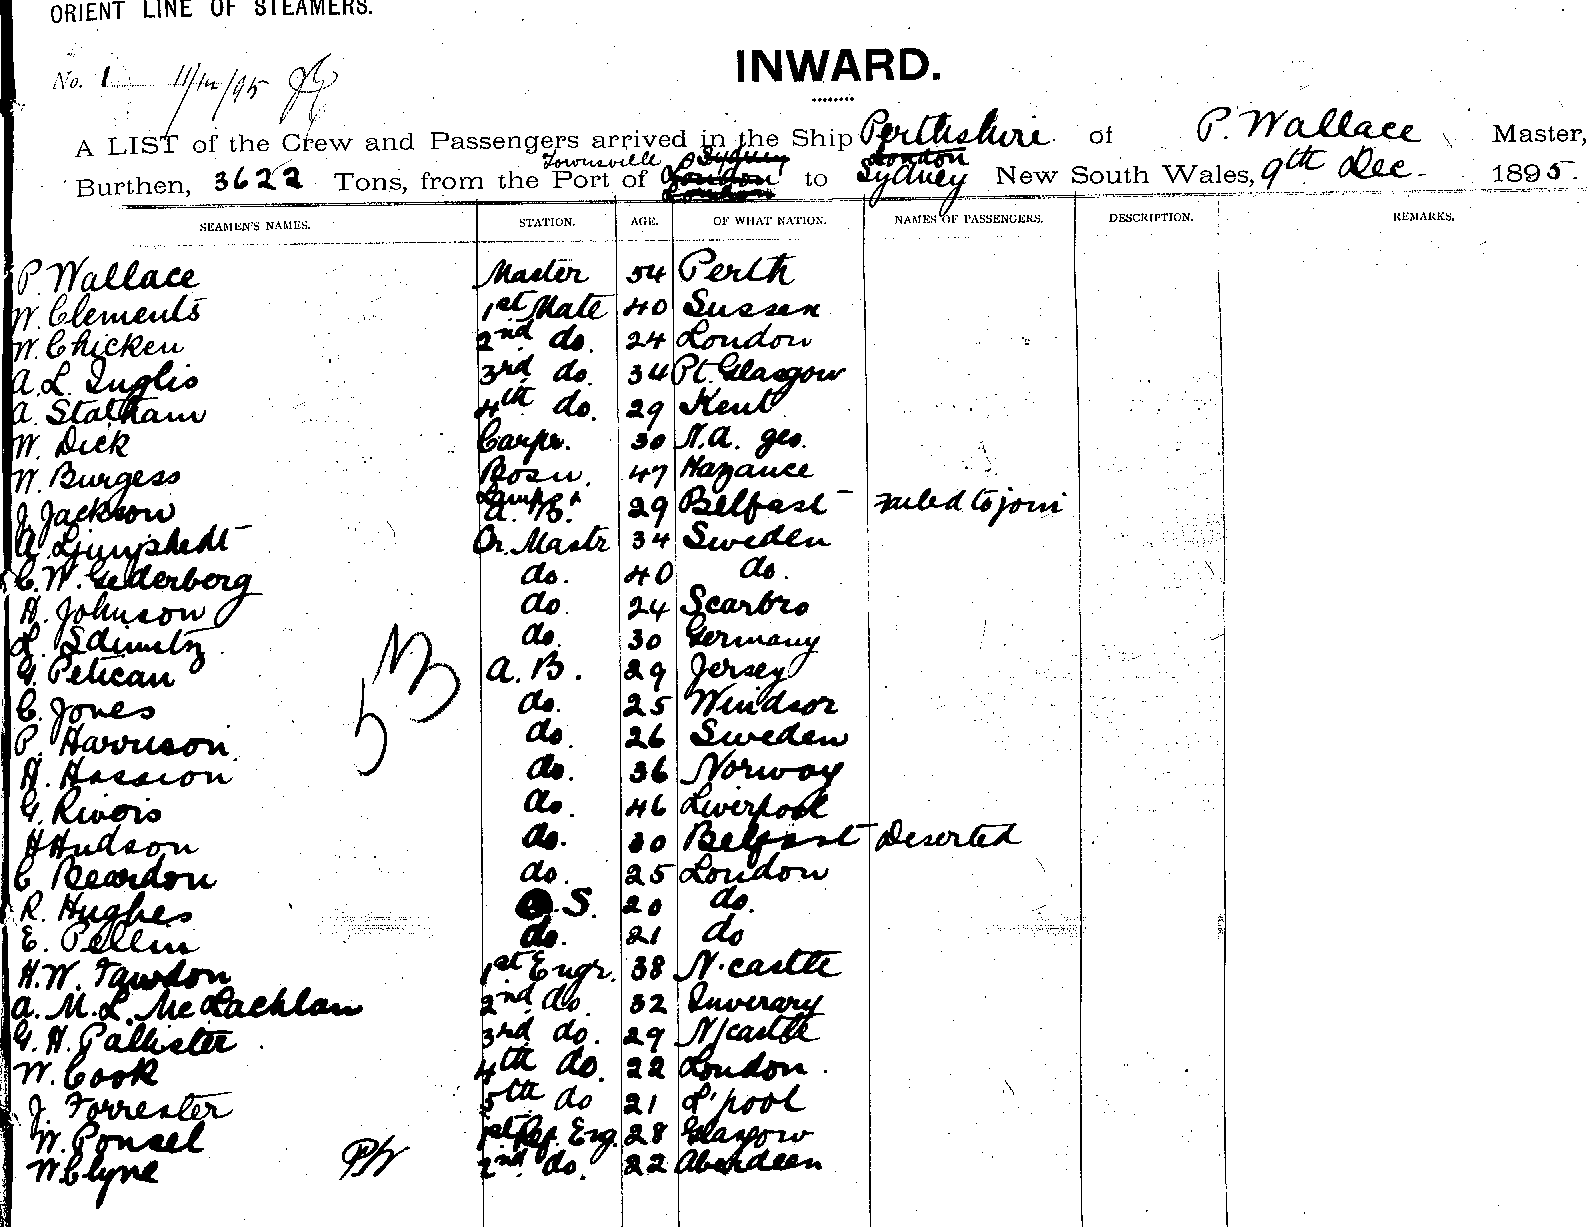 ORIENT LINE OF STEAMERS.
No. 1 11/12/95
INWARD.
A LIST of the Crew and Passengers arrived in the Ship Perthshire of P. Wallace Master,
Burthen, 3622 Tons, from the Port of Townsville to Sydney New South Wales, 9th Dec. 1895.
SEAMEN'S NAMES. STATION. AGE. OF WHAT NATION. NAMES OF PASSENGERS. DESCRIPTION. REMARKS.
P Wallace Master 54 Perth
W. Clements 1st Mate 40 Sussex
W. Chicken 2nd do. 24 London
A. L. Inglis 3rd do. 34 Pt. Glasgow
A. Statham 4th do. 29 Kent
W. Dick Carpr. 30 N.A.
W. Burgess Bosn. 47
J. Jackson Lamps A.B. 29 Belfast - Failed to join
A. Qr. Mastr 34 Sweden
C. W. do. 40 do.
H. Johnson do. 24 Scarbro
do. 30 Germany
G. Petican A. B. 29 Jersey
C. Jones do. 25 Windsor
P. Harrison do. 26 Sweden
H. Hassion do. 36 Norway
G. Rivois do. 46 Liverpool
H Hudson do. 30 Belfast Deserted
C Reardon do. 25 London
R. Hughes O.S. 20 do.
E. Pellin do. 21 do
H. W. Tawdon 1st Engr. 38 N.castle
A. M. L. McLachlan 2nd do. 32 Inverary
G. H. Pallister 3rd do. 29 N/castle
W. Cook 4th do. 22 London.
J. Forrester 5th do 21 L'pool
W. Ponsel 1st Ref. Eng. 28 Glasgow
W Clyne 2nd do. 22 Aberdeen
53
PW